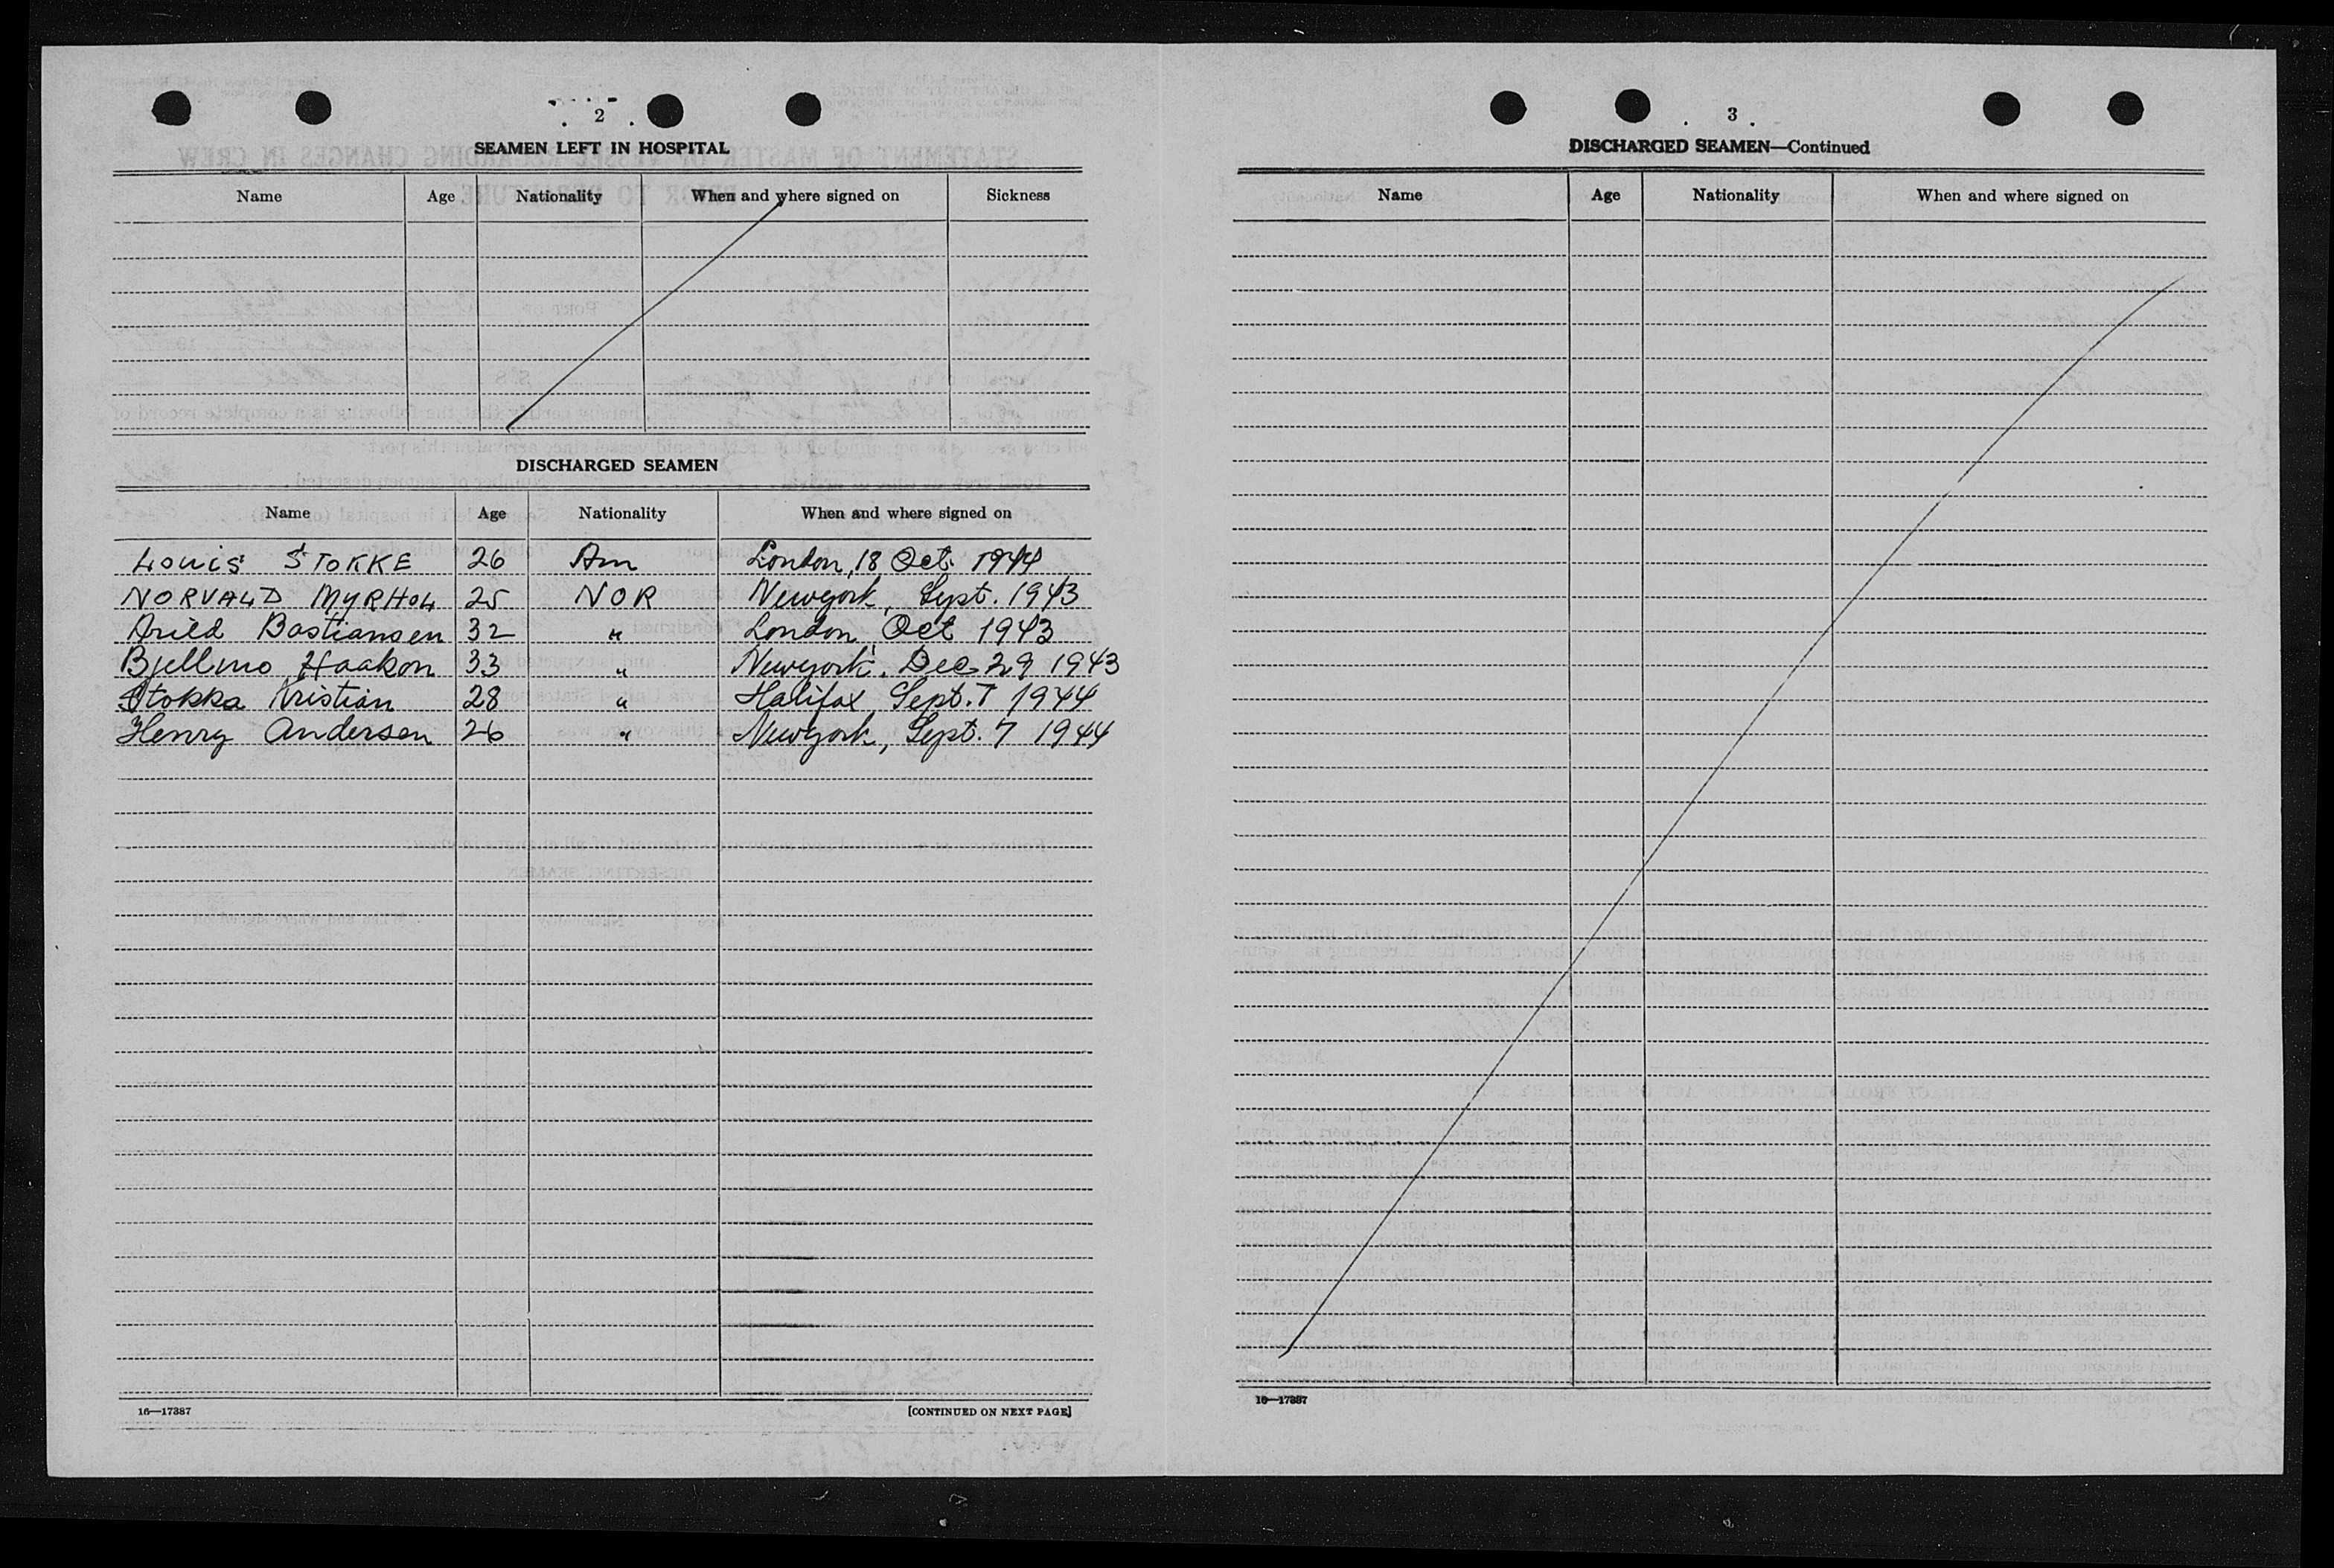 2
SEAMEN LEFT IN HOSPITAL
Name Age Nationality When and where signed on Sickness
DISCHARGED SEAMEN
Name Age Nationality When and where signed on
Louis STOKKE 26 Am London, 18 Oct. 1944
NORVALD MYRHOL 25 NOR Newyork, Sept. 1943
Arild Bastiansen 32 " London, Oct 1943
Bjellmo Haakon 33 " Newyork, Dec. 29 1943
Stokka Kristian 28 " Halifax, Sept. 7 1944
Henry Andersen 26 " Newyork, Sept. 7 1944
16—17387 [CONTINUED ON NEXT PAGE]
3
DISCHARGED SEAMEN—Continued
Name Age Nationality When and where signed on
16—17387